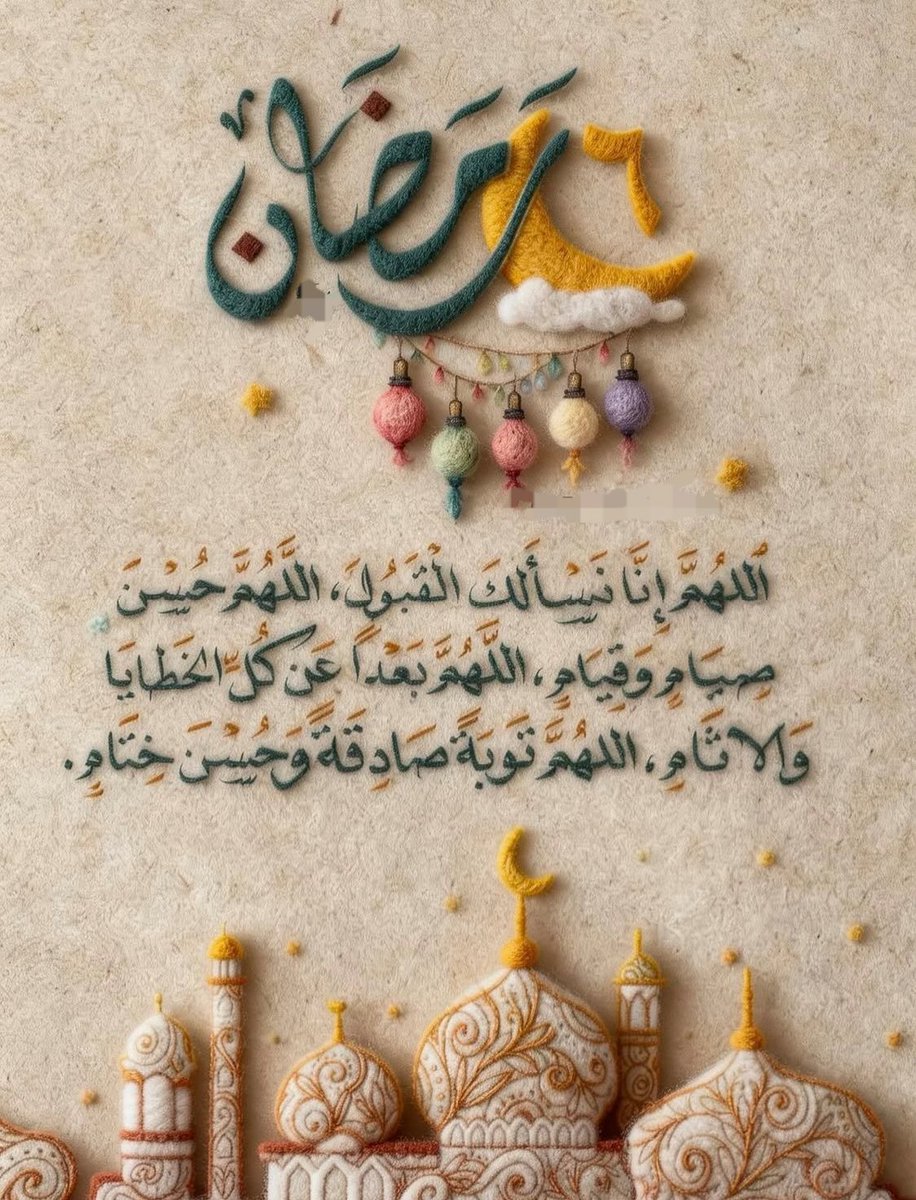 ٦ رَمَضَان
اللهُمَّ إِنَّا نَسْأَلُكَ الْقَبُولَ، اللَّهُمَّ حُسْنَ
صِيَامٍ وَقِيَامٍ، اللَّهُمَّ بَعْداً عَن كُلِّ الخَطايَا
وَالآثَامِ، اللهُمَّ تَوبَةً صَادِقَةً وَحُسْنَ خِتَامٍ.